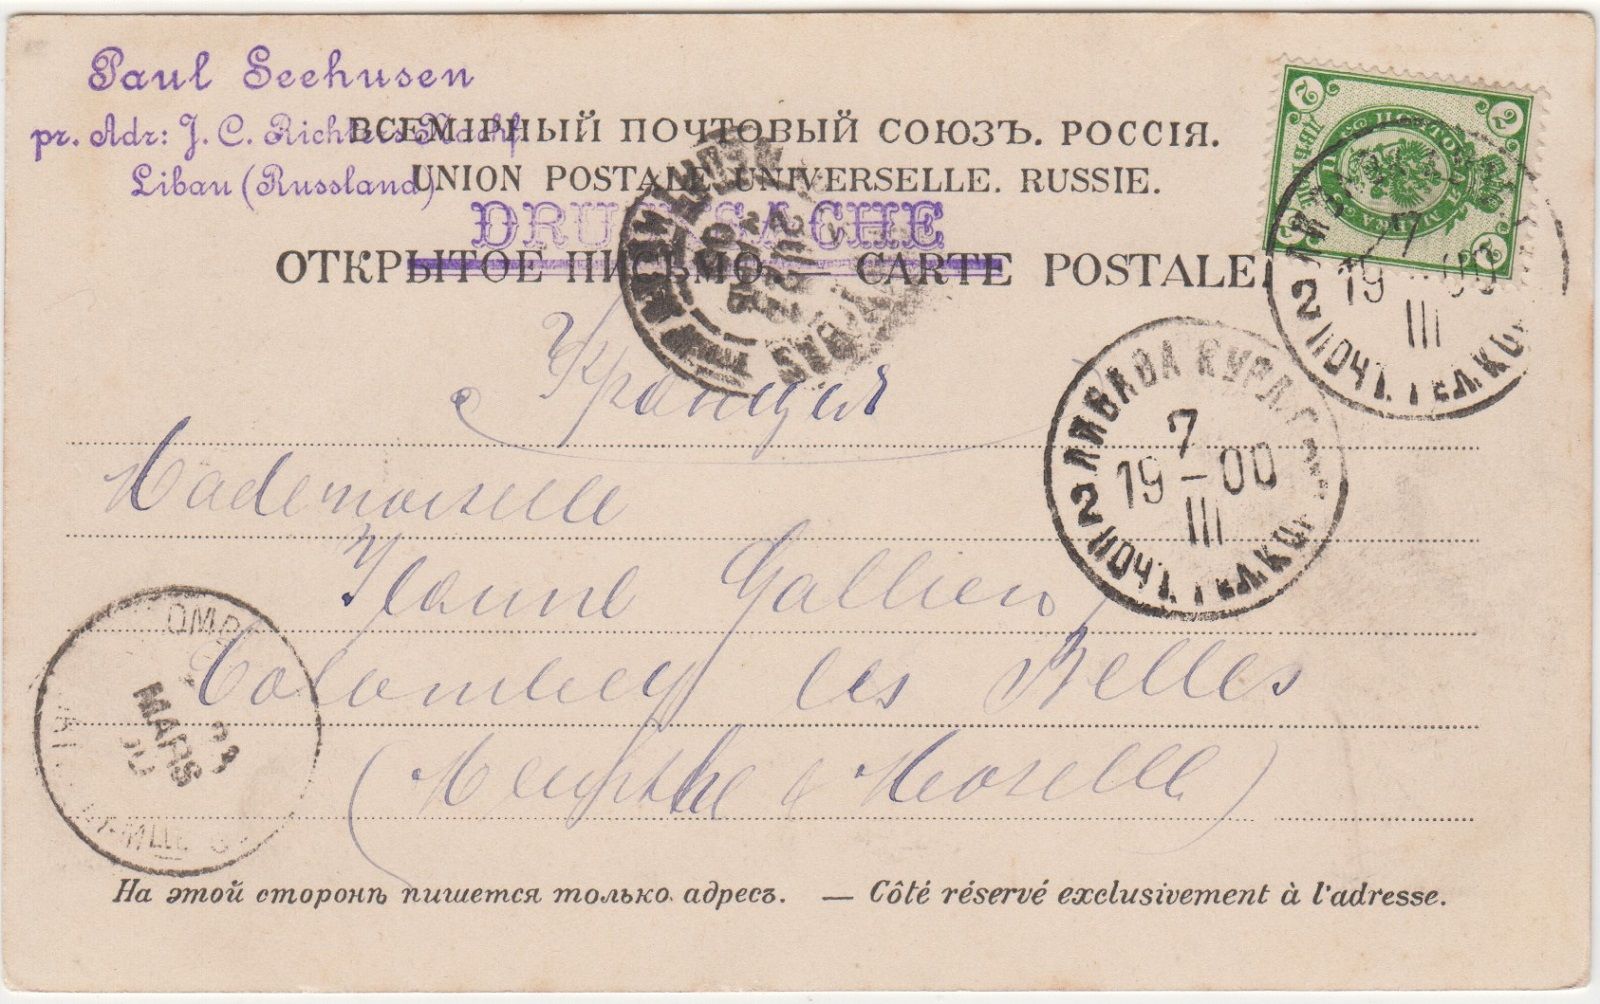 Paul Seehusen
pr. Adr: J. C. Richters Nachf
Libau (Russland)
ВСЕМІРНЫЙ ПОЧТОВЫЙ СОЮЗЪ. РОССІЯ.
UNION POSTALE UNIVERSELLE. RUSSIE.
DRUCKSACHE
ОТКРЫТОЕ ПИСЬМО. — CARTE POSTALE.
2 2
2
2 ЛИБАВА
7
19-00
III
ПОЧТ. ТЕЛ. КО
2 ЛИБАВА КУРЛ.
7
19-00
III
ПОЧТ. ТЕЛ. КО
Франція
Mademoiselle
Jeanne Gallien,
Colombey les Belles
(Meurthe & Moselle)
MARS
На этой сторонѣ пишется только адресъ. — Côté réservé exclusivement à l'adresse.